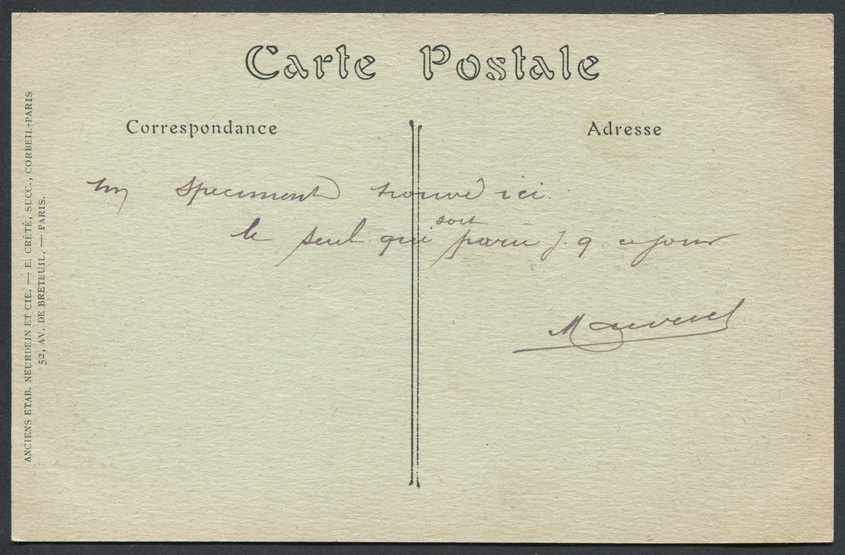 Carte Postale
Correspondance
Adresse
ANCIENS ETAB. NEURDEIN ET CIE. — E. CRÉTÉ, SUCC., CORBEIL-PARIS
52, AV. DE BRETEUIL. — PARIS.
Un speciment trouvé ici
le seul qui soit paru j. q. ce jour